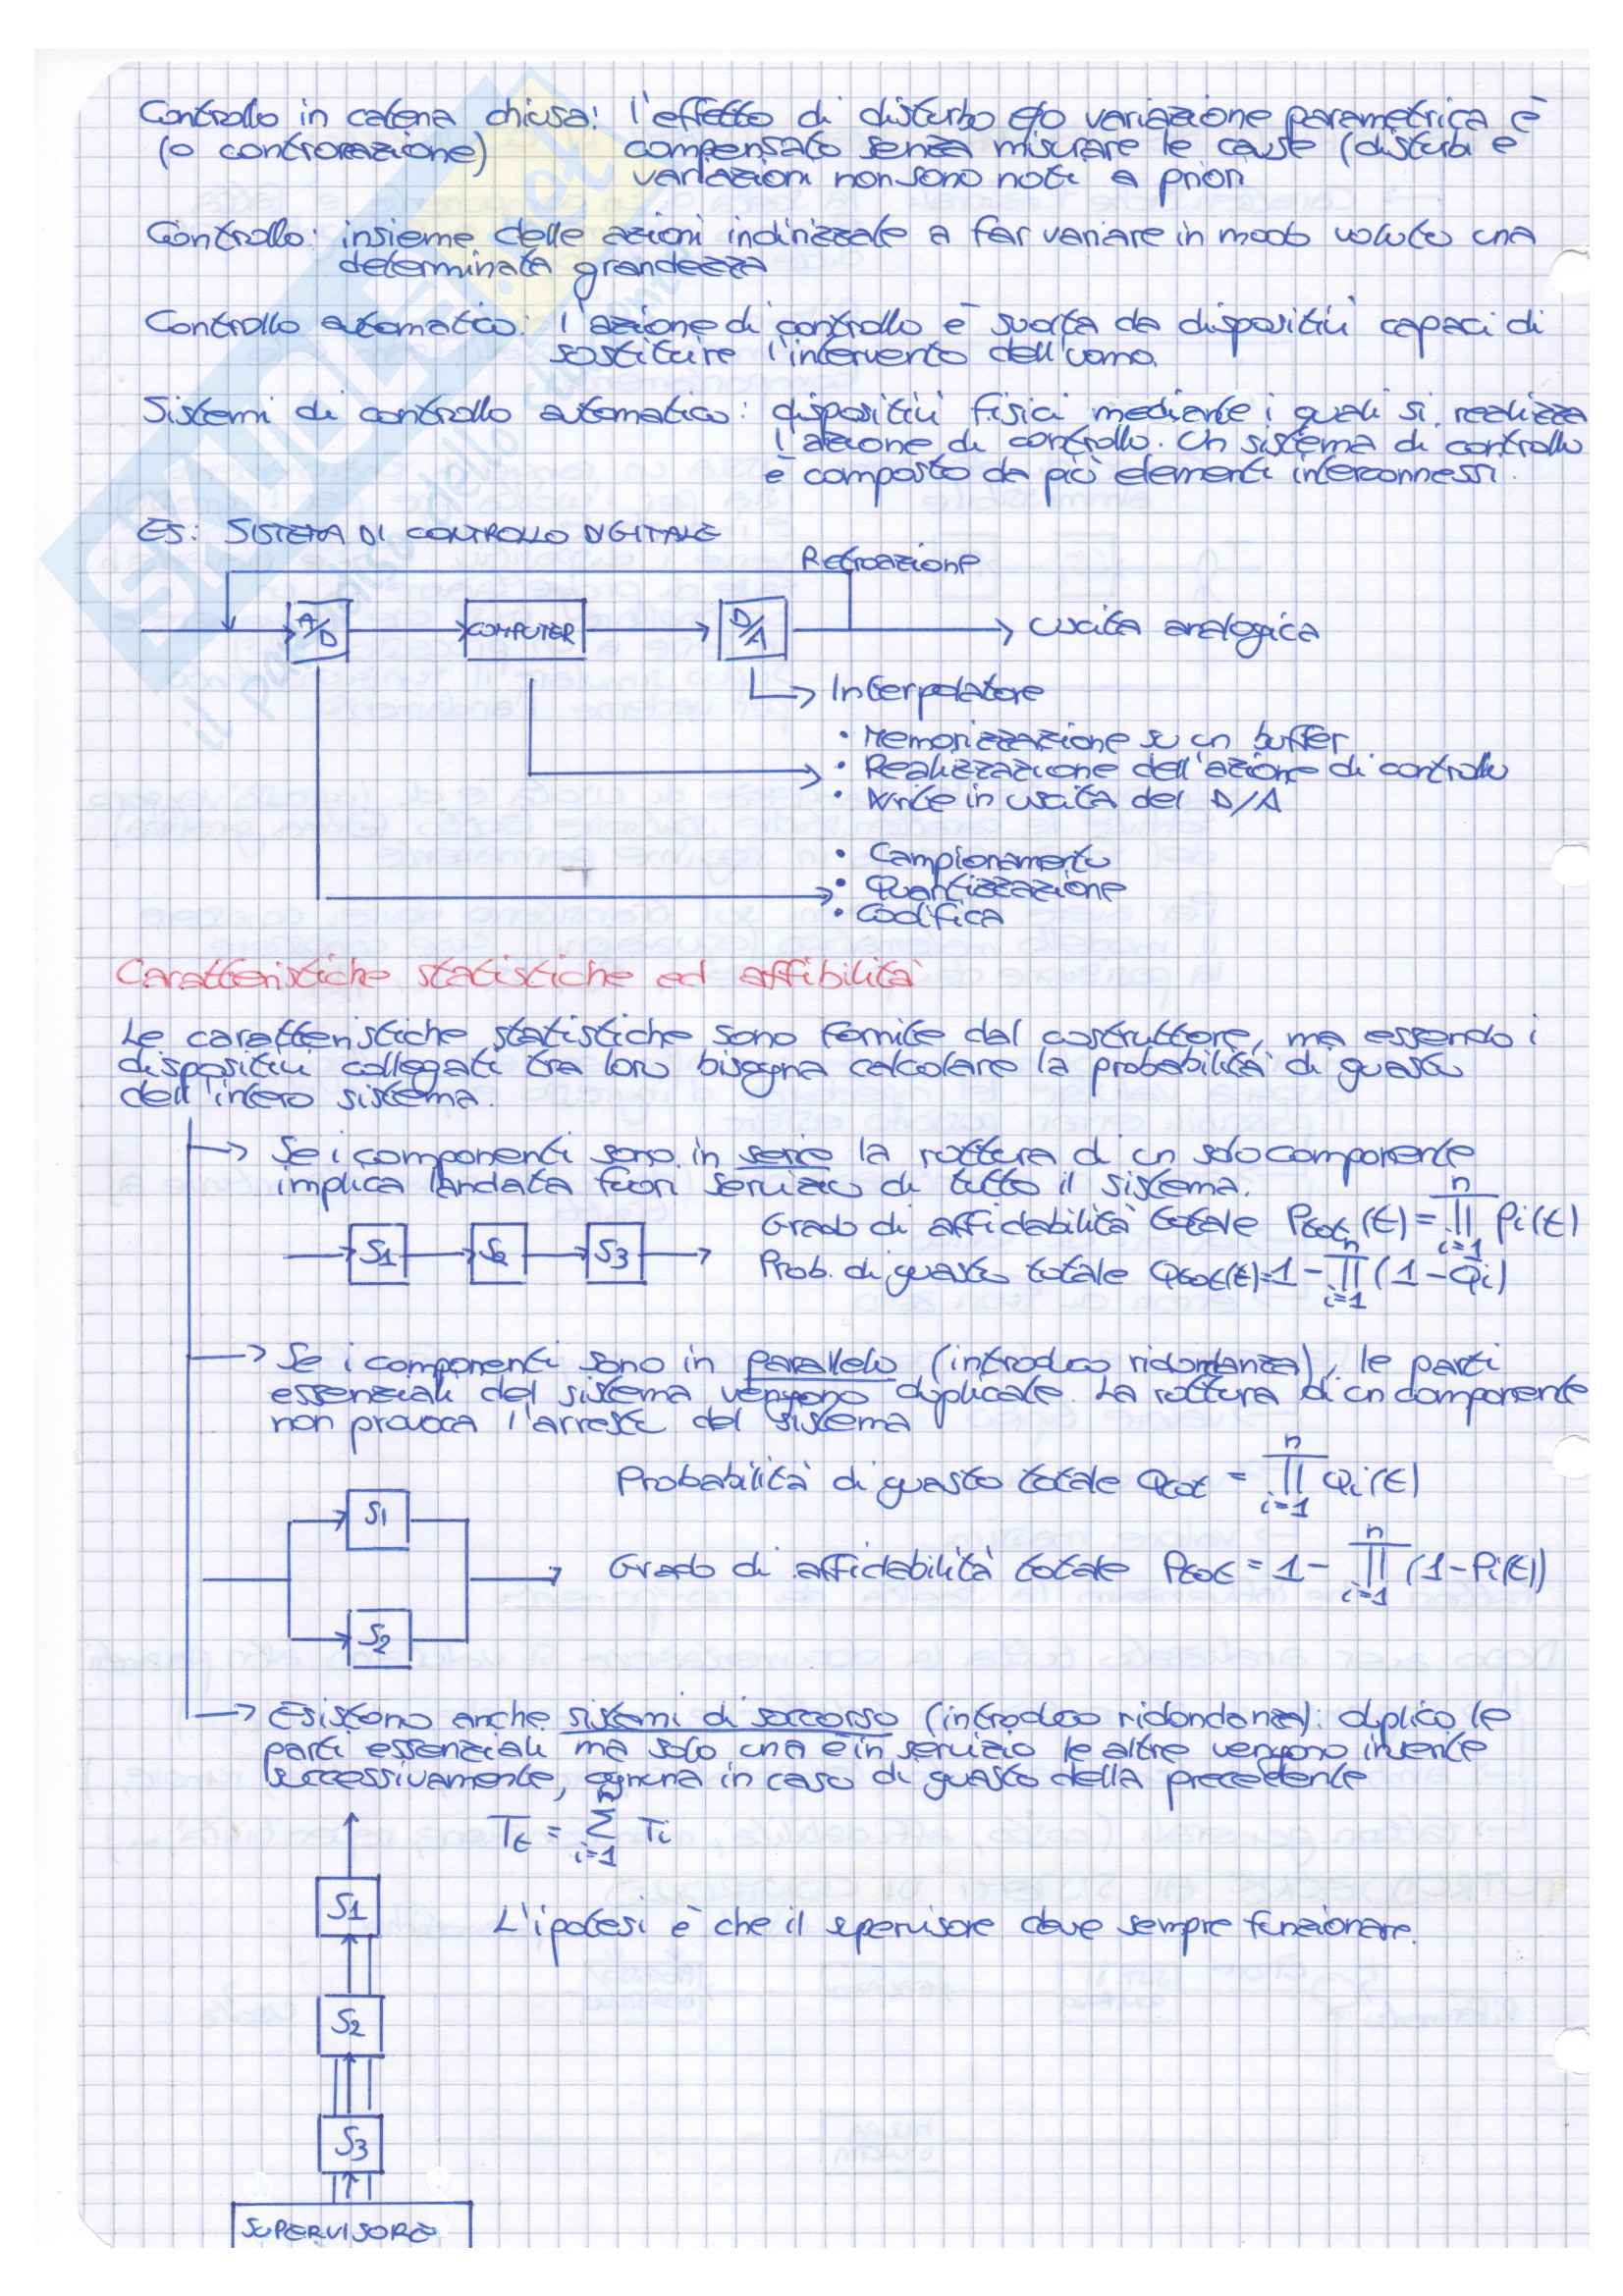 Controllo in catena chiusa: l'effetto di disturbo e/o variazione parametrica è
(o controreazione) compensato senza misurare le cause (disturbi e
variazioni non sono noti a priori
Controllo: insieme delle azioni indirizzate a far variare in modo voluto una
determinata grandezza
Controllo automatico: l'azione di controllo è svolta da dispositivi capaci di
sostituire l'intervento dell'uomo.
Sistemi di controllo automatico: dispositivi fisici mediante i quali si realizza
l'azione di controllo. Un sistema di controllo
è composto da più elementi interconnessi.
ES: SISTEMA DI CONTROLLO DIGITALE
Retroazione
A/D COMPUTER D/A uscita analogica
Interpolatore
• Memorizzazione su un buffer
• Realizzazione dell'azione di controllo
• Write in uscita del D/A
• Campionamento
• Quantizzazione
• Codifica
Caratteristiche statistiche ed affibilità
Le caratteristiche statistiche sono fornite dal costruttore, ma essendo i
dispositivi collegati tra loro bisogna calcolare la probabilità di guasto
dell'intero sistema.
→ Se i componenti sono in serie la rottura di un solo componente
implica l'andata fuori servizio di tutto il sistema.
S1 S2 S3 Grado di affidabilità totale Ptot(t) = ∏ⁿᵢ₌₁ Pi(t)
Prob. di guasto totale Qtot(t) = 1 - ∏ⁿᵢ₌₁ (1 - Qi)
→ Se i componenti sono in parallelo (introduco ridondanza), le parti
essenziali del sistema vengono duplicate. La rottura di un componente
non provoca l'arresto del sistema
Probabilità di guasto totale Qtot = ∏ⁿᵢ₌₁ Qi(t)
S1
Grado di affidabilità totale Ptot = 1 - ∏ⁿᵢ₌₁ (1 - Pi(t))
S2
→ Esistono anche sistemi di soccorso (introduco ridondanza): duplico le
parti essenziali ma solo una è in servizio le altre vengono inserite
successivamente, ognuna in caso di guasto della precedente
Tt = ∑ⁿᵢ₌₁ Ti
S1
L'ipotesi è che il supervisore deve sempre funzionare.
S2
S3
SUPERVISORE
SKUOLA.net